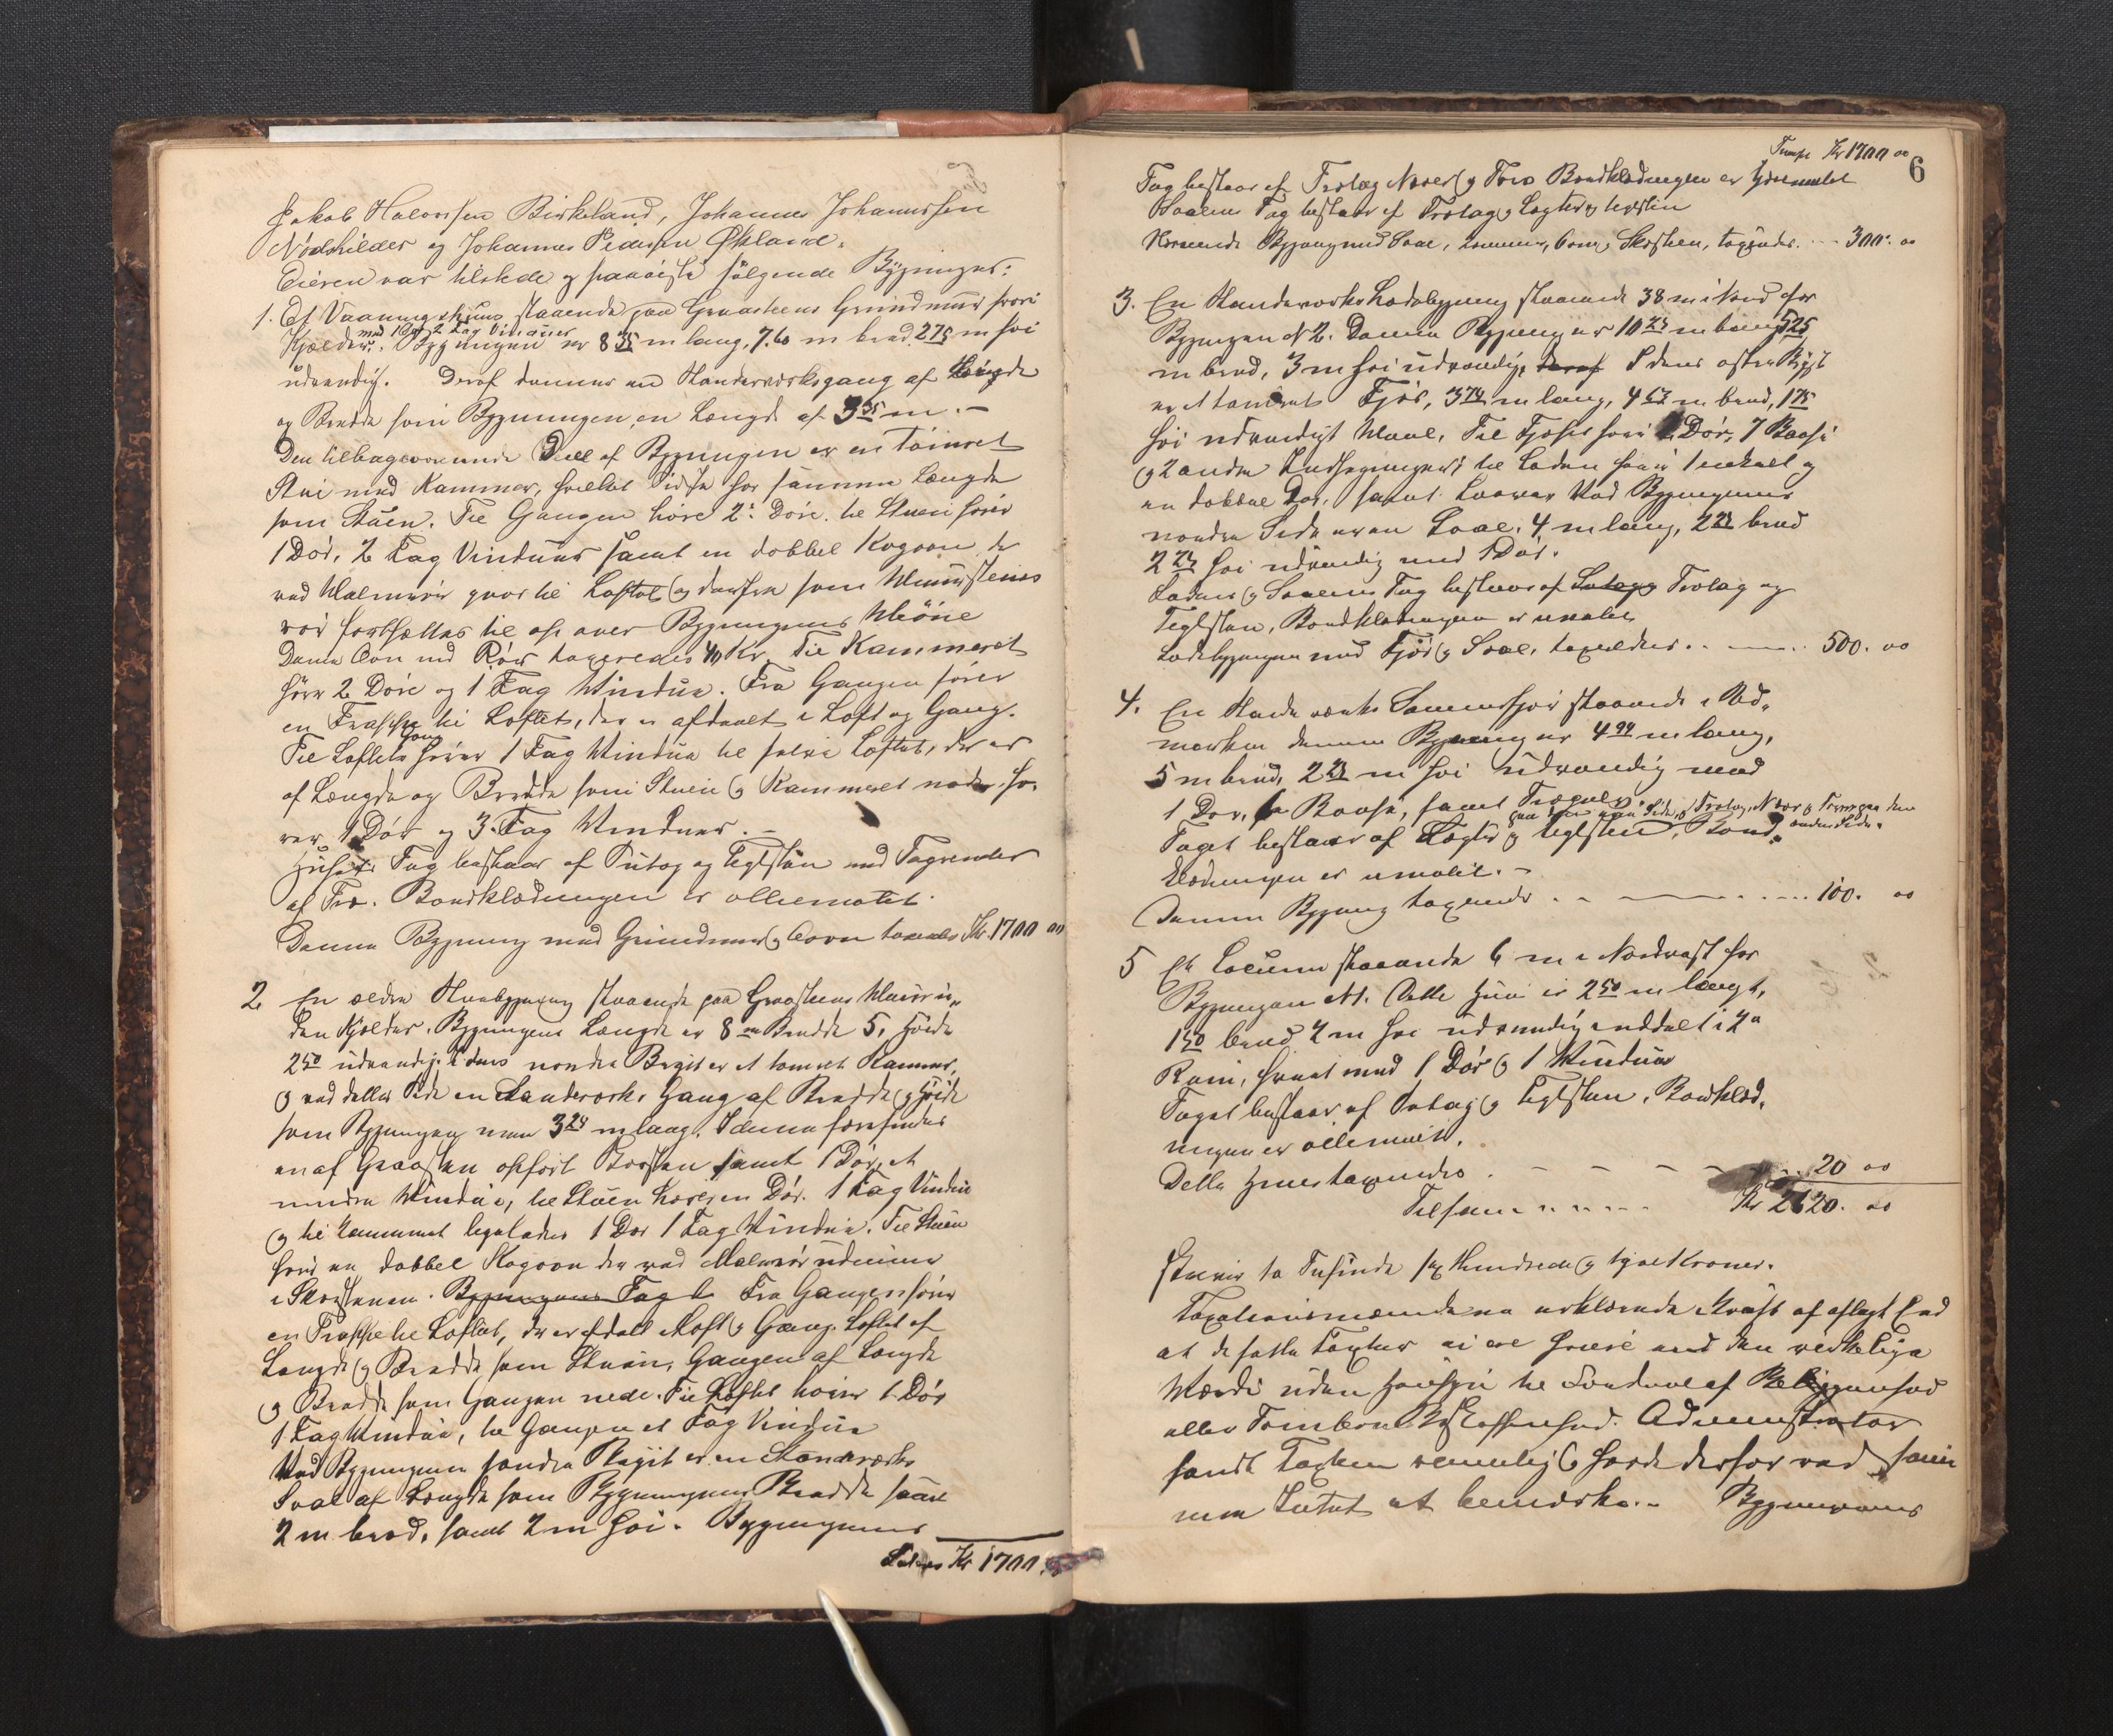 Jakob Halvorsen Birkeland, Johannes Johannessen
Nødskilder og Johannes Pedersen Økland.
Eieren var tilstede og paaviste følgende Bygninger:
1. Et Vaaningshuus staaende paa Graasteens Grundmuur hvori
med 1 Dør 2 Fag Vinduer
Kjelder. Bygningen er 8 35 m lang, 7.60 m bred 2 75 m høi
udvendig. Deraf dannes en Standerværksgang af Høigde
og Bredde som Bygningen, en Længde af 3 35 m. -
Den tilbageværende Deel af Bygningen er en tømret
Stue med Kammer, hvilket Sidste har samme Længde
som Stuen. Til Gangen høre 2 Døre. til Stuen hører
1 Dør, 2 Fag Vinduer samt en dobbel Kogeovn der
ved Malmrør gaar til Loftet og derfra som Muursteens
rør fortsættes til op over Bygningens Møne
Denne Ovn med Rør taxeredes 40 Kr. Til Kammeret
hører 2 Døre og 1 Fag Vindue. Fra Gangen fører
en Trappe til Loftet, der er afdeelt i Loft og Gang.
Til Loftets Gang hører 1 Fag Vindue til selve Loftet, der er
af Længde og Bredde som Stuen og Kammeret neder, hø,
rer 1 Dør og 3 Fag Vinduer. -
Husets Tag bestaar af Sutag og Teglsten med Tagrender
af Træ. Bordklædningen er olliemalet.
Denne Bygning med Grundmur og Ovn taxeredes Kr. 1700 00
2 En ældre Stuebygning staaende paa Graasteens Muur u,,
den Kjelder. Bygningens Længde er 8 m Bredde 5, Høide
2 50 udvendig. I dens nordre Ende er et tømret Kammer,
og ved dettes Side en Standerværks Gang af Bredde og Høide
som Bygningen men 3 24 m lang. I denne forefindes
en af Graasten opført Skorsten samt 1 Dør, et
mindre Vindue, til Stuen hører en Dør. 1 Fag Vindue
og til Kammeret ligeledes 1 Dør 1 Fag Vindue. Til Stuen
hører en dobbel Kogeovn der ved Malmrør udmunder
i Skorstenen. Bygningens Tag b Fra Gangen fører
en Trappe til Loftet, der er afdelt i Loft og Gang. Loftet af
Længde og Bredde som Stuen, Gangen af Længde
og Bredde som Gangen nede. Til Loftet hører 1 Dør
1 Fag Vindue, til Gangen et Fag Vindue
Ved Bygningens søndre er en Standerværks
Sval af Længde som Bygningens Bredde samt
2 m bred, samt 2 m høi. Bygningens
Kr 1700.
Kr 1700 00
6
Tag bestaar af Trolag Næver og Torv Bordklædningen er
Svalens Tag bestaar af Trolag og Lægter og teglsten
Bygning med Sval, Kammer, Ovn og Skorsten, taxeredes. - - - 300. 00
3. En Standerværks Ladebygning staaende 38 m i Nord for
Bygningen No 2. Denne Bygning er 10 25 m lang 5 25
m bred, 3 m høi udvendig, deraf I dens østre
er et tømret Fjøs, 3 74 m lang, 4 57 m bred, 1 75
høi udvendigt Maal. Til Fjøset hører Dør, 7 Baase
og 2 andre Indhegninger; til Laden hører 1 enkelt og
en dobbel Dør, samt Laaver Ved Bygningens
nordre Side er en Sval, 4 m lang, 2 25 bred
2 25 høi udvendig med 1 Dør.
Ladens og Svalens Tag bestaar af Sutag og Trolag og
Teglsten, Bordklædningen er umalet,
Ladebygningen med Fjøs og Sval, taxeredes. - - - 500. 00
4. En Standerværks Sommerfjøs staaende i Ud,,
marken denne Bygning er 4 94 m lang,
5 m bred, 2 25 m høi udvendig med
1 Dør, 6 Baase, samt Trægulv.
paa den ene Side, af Trolag, Næver og Torv paa den
anden Side.
Taget bestaar af Lægter og teglsten, Bord,,
klædningen er umalet. -
Denne Bygning taxeredes - - - 100. 00
5 Et Locum staaende 6 m i Nordvest for
Bygningen No 1. Dette Huus er 2 50 m langt,
1 50 bred 2 m høi udvendig inddelt i 2
Rum, hvert med 1 Dør og 1 Vindue
Taget bestaar af Sutag og Teglsten. Bordklæd,
ningen er olliemalet.
Dette Huus taxeredes - - - 20 00
Tilsam - - - Kr 2620. 00
skriver to Tusinde sex Hundrede og tyve Kroner.
Taxationsmændene erklærede i Kraft af aflagt Eed
at de satte Taxter ei ere høiere end den virkelige
Værdi uden Hensyn til Sondreel af Beliggenhed
eller Tomtens Beskaffenhed. Administrator
fandt Taxten rimelig og havde derfor ved samme
intet at bemærke. - Bygningens